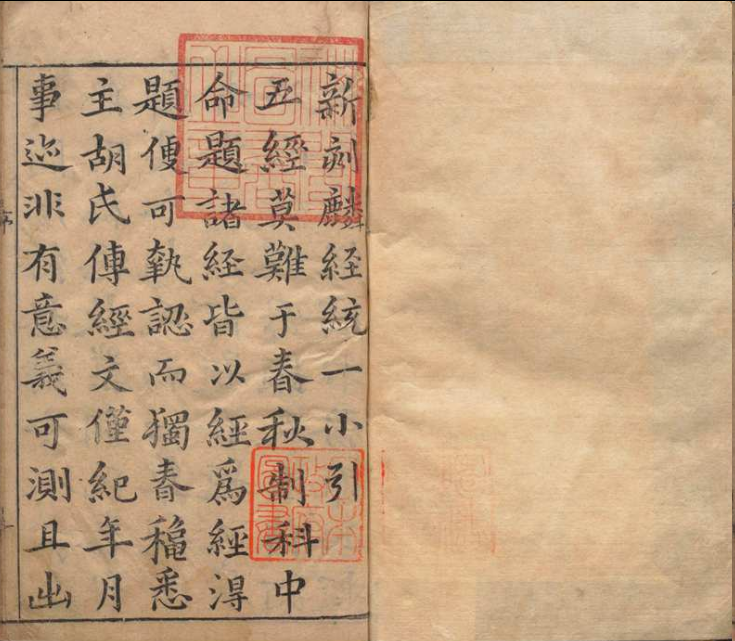 新刻麟経統一小引
五經莫難于春秋制科中
命題諸経皆以經爲經淂
題便可執認而獨春龝悉
主胡氏傳經文僅紀年月
事迹非有意義可測且出